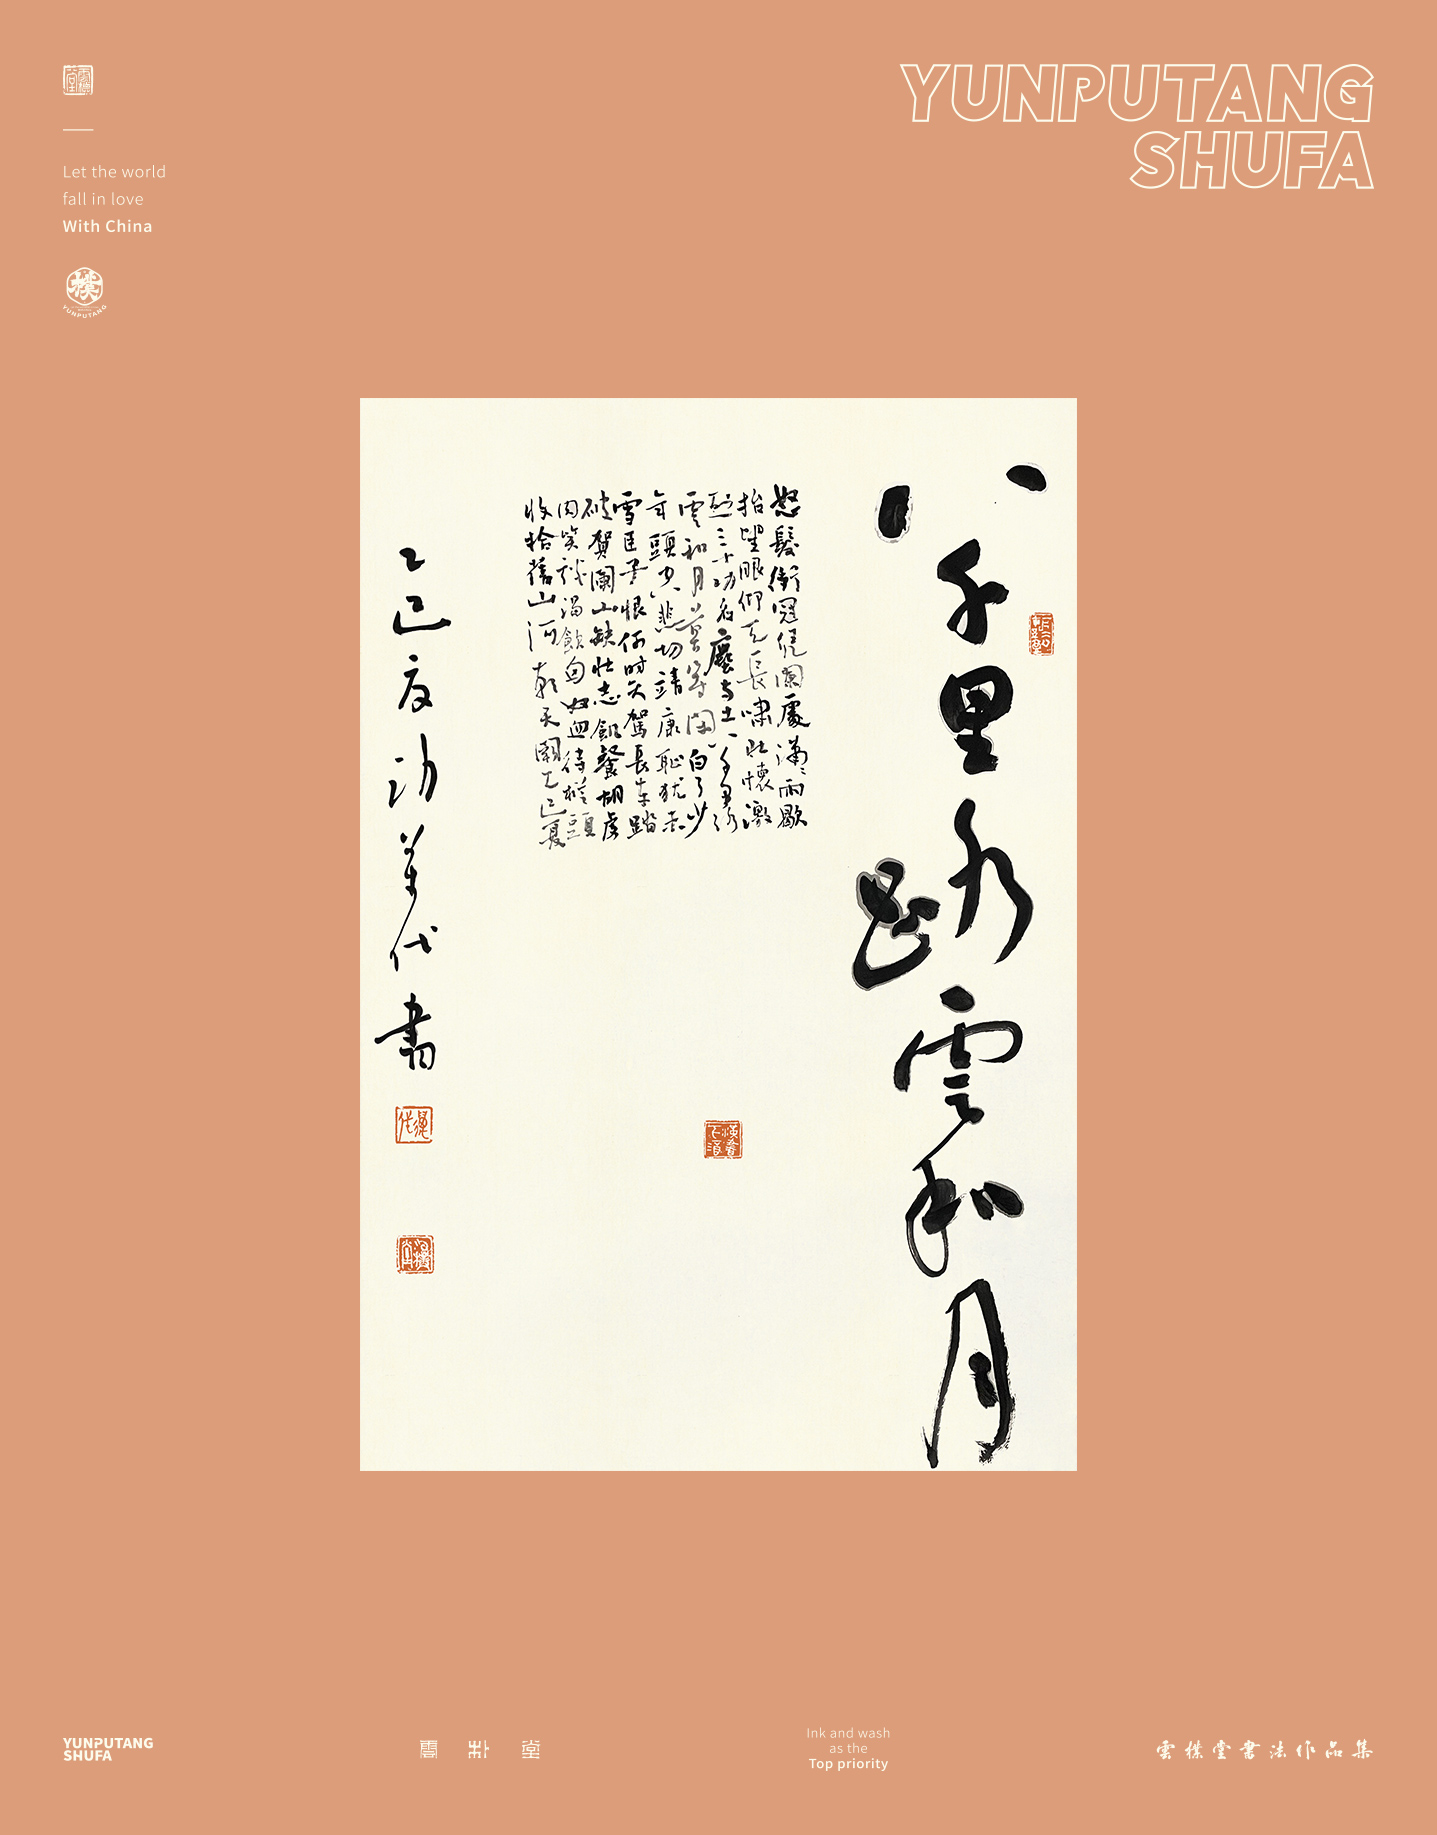 雲樸堂
YUNPUTANG
SHUFA
Let the world
fall in love
With China
樸
YUNPUTANG
八千里路雲和月
怒髮衝冠凭闌處潇〻雨歇
抬望眼仰天長嘯壯懷激
烈三十功名塵與土八千里路
雲和月莫等閑白了少
年頭空悲切靖康恥犹未
雪臣子恨何时灭駕長车踏
破贺闌山缺壮志飢餐胡虏
肉笑談渴飲匈奴血待從頭
收拾舊山河朝天闕乙巳夏
乙巳夏初
代書
YUNPUTANG
SHUFA
雲朴堂
Ink and wash
as the
Top priority
雲樸堂書法作品集